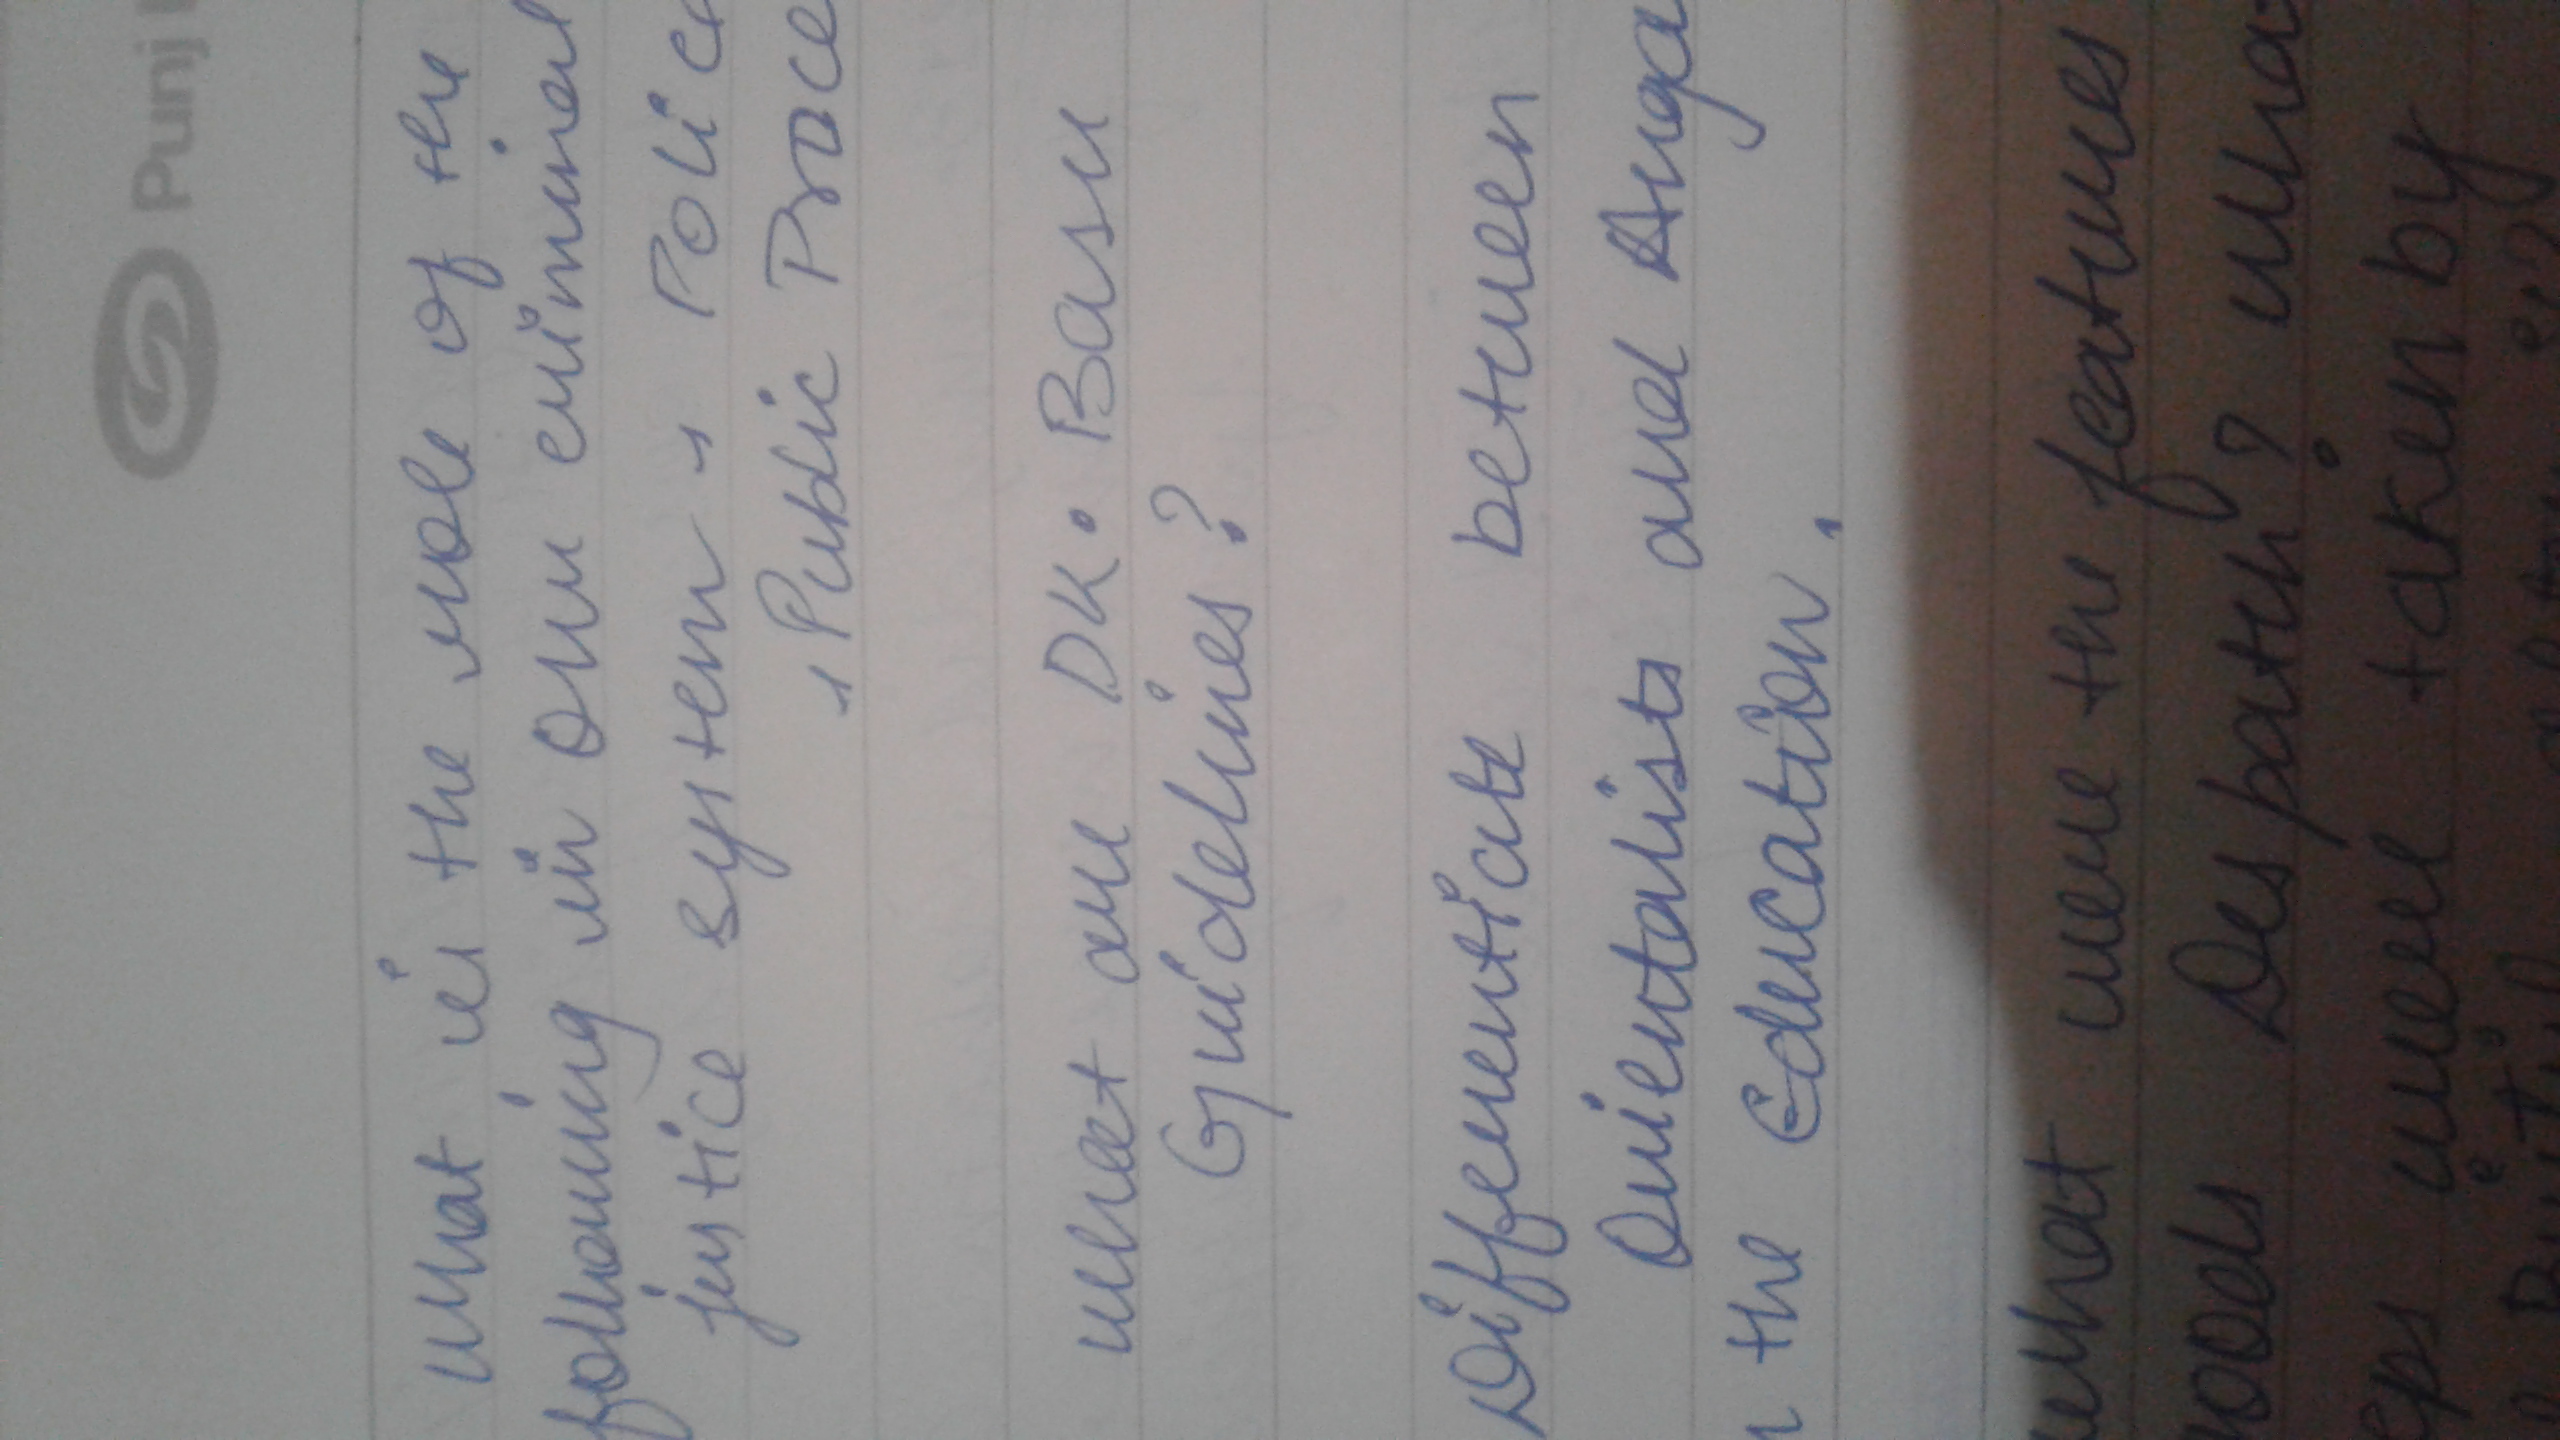 Punj
What is the role of the
following in our criminal
justice system, Polic
, Public Proce
What are DK. Basu
Guidelines?
Differentiate between
Orientalists and Anga
the Education.
what were the features
Woods Despatch? Wha
eps were taken by